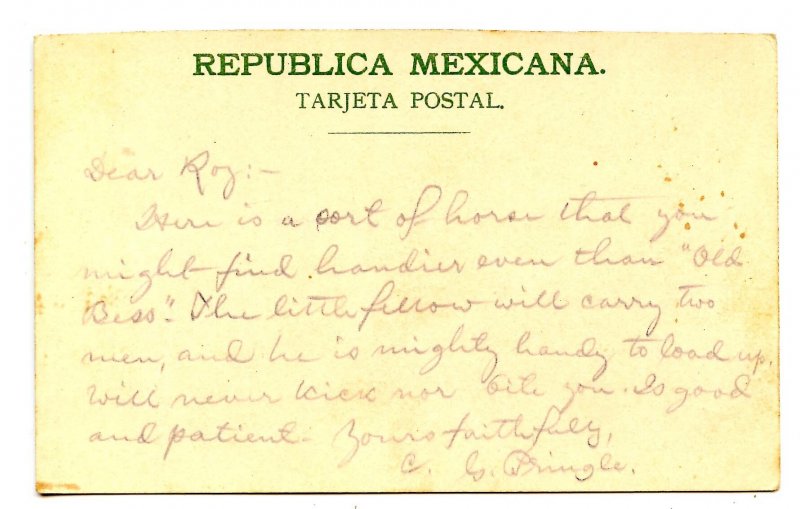 REPUBLICA MEXICANA.
TARJETA POSTAL.
Dear Roy:-
Here is a sort of horse that you
might find handier even than "Old
Bess". The little fellow will carry two
men, and he is mighty handy to load up,
Will never kick nor bite you. Is good
and patient. Yours faithfully,
C. G. Pringle.